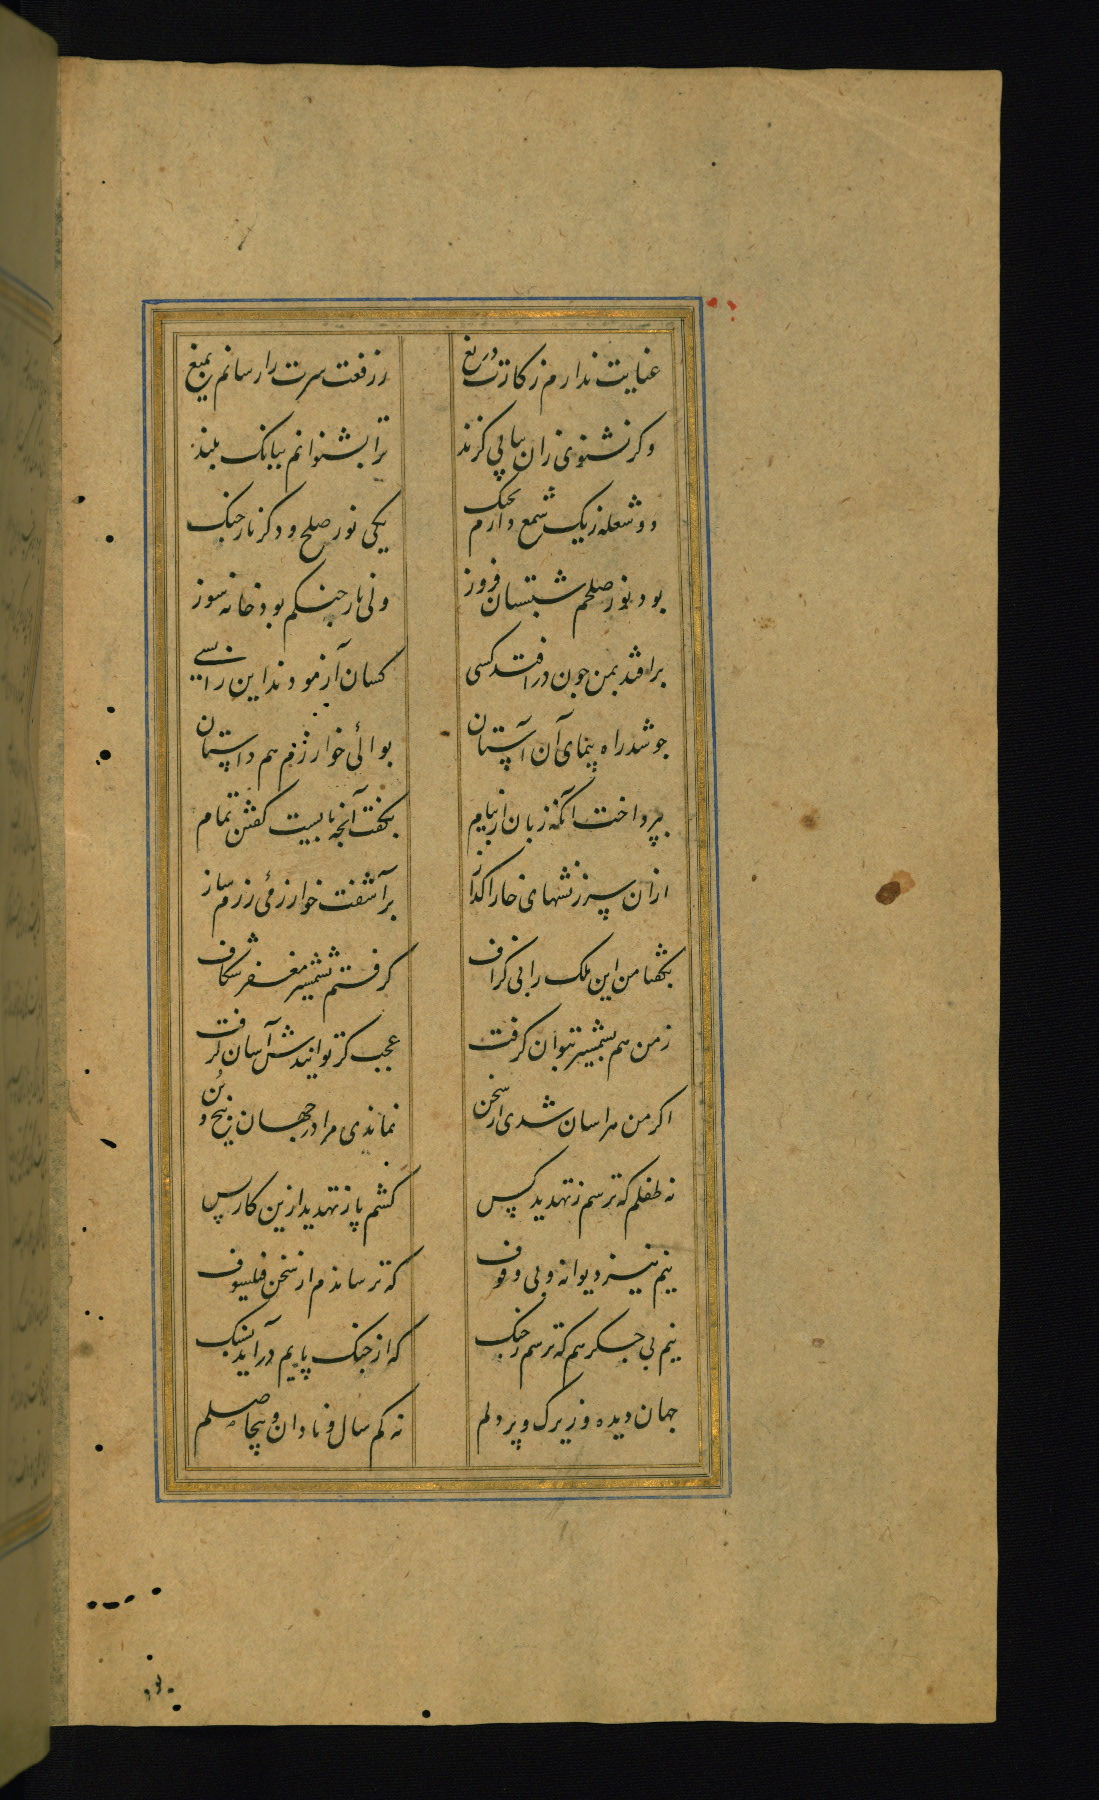 عنایت ندارم ز کارت دریغ
ز رفعت سرت را رسانم بمیغ
وکر نشنوی زان بیابی کزند
ترا بشنوانم ببانک بلند
دو شعله ز یک شمع دارم بچنک
یکی نور صلح و دکر نار جنک
بود نور صلحم شبستان فروز
ولی نار جنکم بود خانه سوز
برافتد بمن چون درافتد کسی
کسان آزمودند این را بسی
چو شد راه پیمای آن آستان
بوالئی خوارزم هم داستان
بپرداخت آنکه زبان از پیام
بکفت آنچه بایست کفتن تمام
ازان سرزنشهای خارا کداز
برآشفت خوارزمئی رزم ساز
بکفتا من این ملک را بی کزاف
کرفتم بشمشیر مغفر شکاف
ز من هم بشمشیر بتوان کرفت
عجب کر توانیدش آسان کرفت
اکر من هراسان شدی از سخن
نماندی مرا در جهان بیخ و بن
نه طفلم که ترسم ز تهدید کس
کشم پا ز تهدید ازین کار پس
نیم نیز دیوانه و بی وقوف
که ترساندم از سخن فیلسوف
نیم بی جکر هم که ترسم ز جنک
که از جنک پایم درآید بسنک
جهان دیده و زیرک و پر دلم
نه کم سال و نادان و بیحاصلم